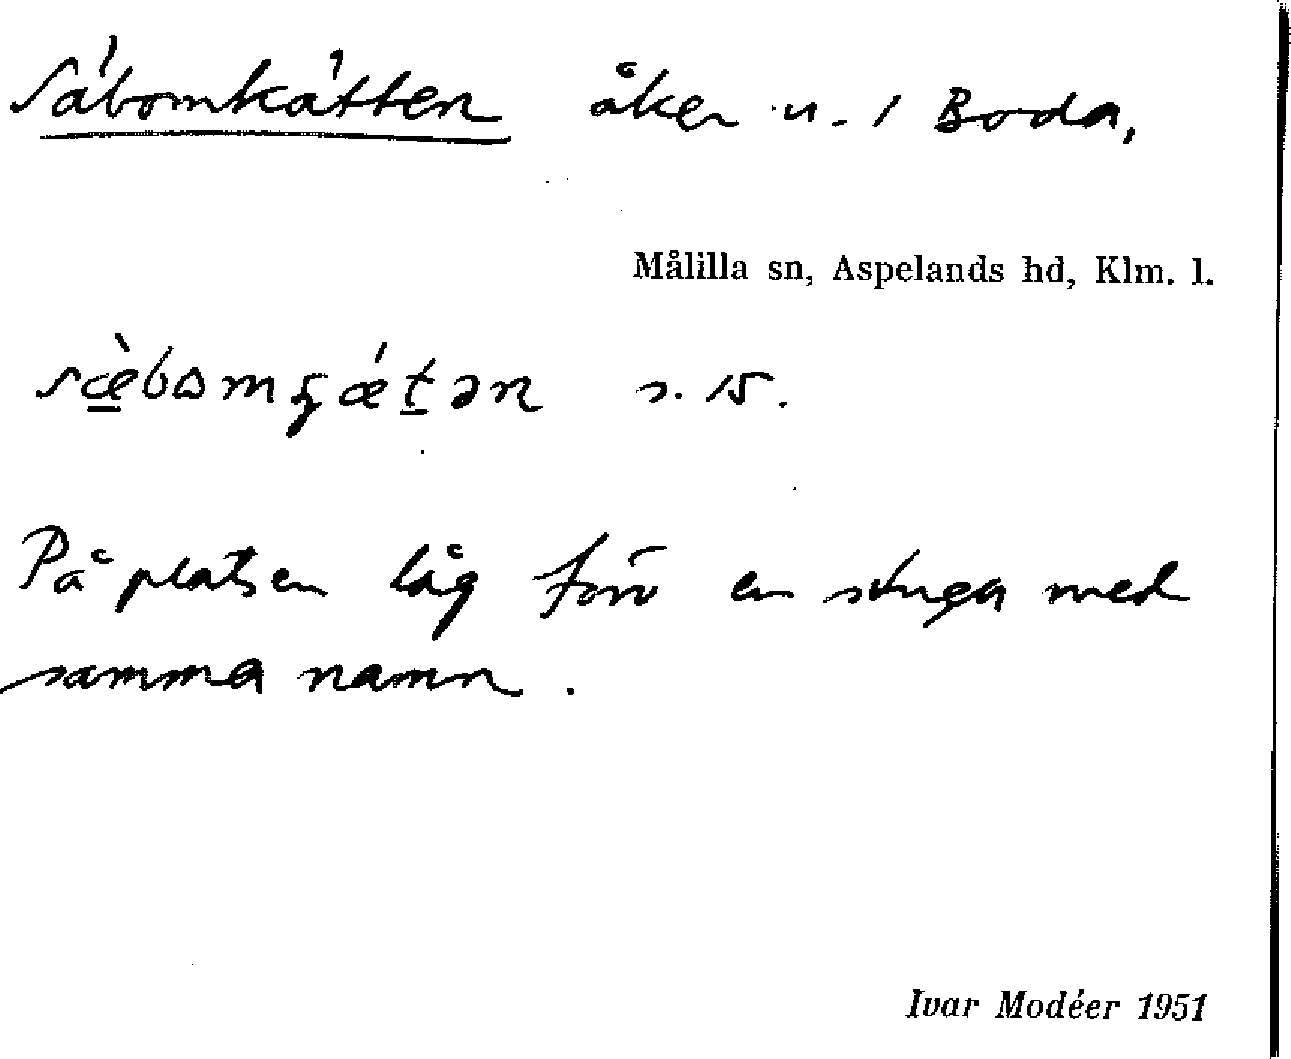 Säbomkätten åker u. 1 Boda,
Målilla sn, Aspelands hd, Klm. l.
s. 15.
På platsen låg förr en stuga med
samma namn.
Ivar Modéer 1951